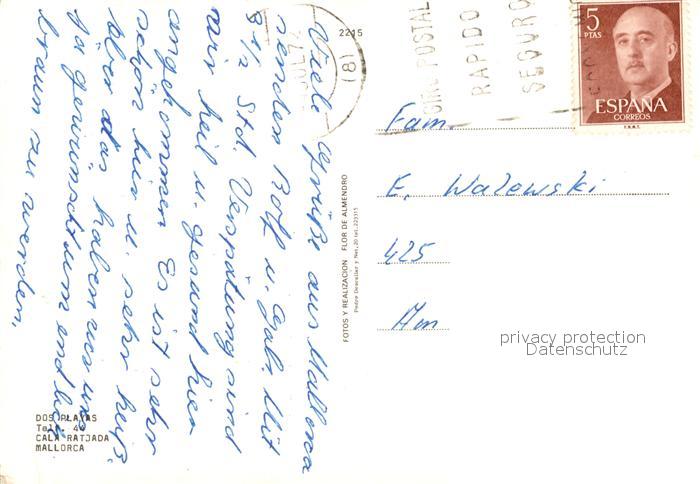 Viele Grüße aus Mallorca
senden Rolf u. Gabi. Mit
8 1/2 Std. Verspätung sind
wir heil u. gesund hier
angekommen. Es ist sehr
schön hier u. sehr heiß,
aber das haben wir uns
ja gewünscht um endlich
braun zu werden.
DOS PLAYAS
CALA RATJADA
MALLORCA
2215
FOTOS Y REALIZACION FLOR DE ALMENDRO
JUL 7
(8)
GIRO POSTAL
RAPIDO
SEGURO
5
PTAS
ESPAÑA
CORREOS
Fam.
E. Walewski
425
privacy protection
Datenschutz